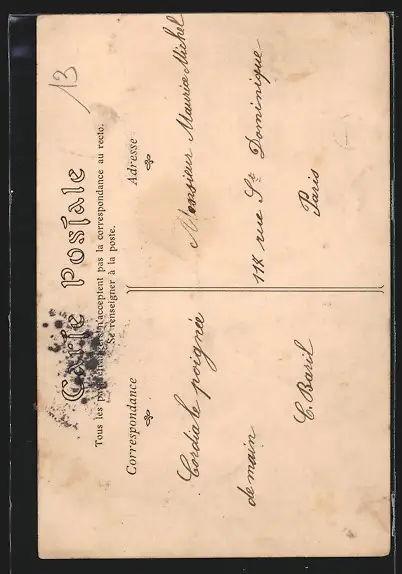 13
Carte Postale
Tous les pays étrangers n'acceptent pas la correspondance au recto.
Se renseigner à la poste.
Correspondance
Adresse
Cordiale poignée
de main
C. Baril
Monsieur Maurice Michel
117 rue St. Dominique
Paris